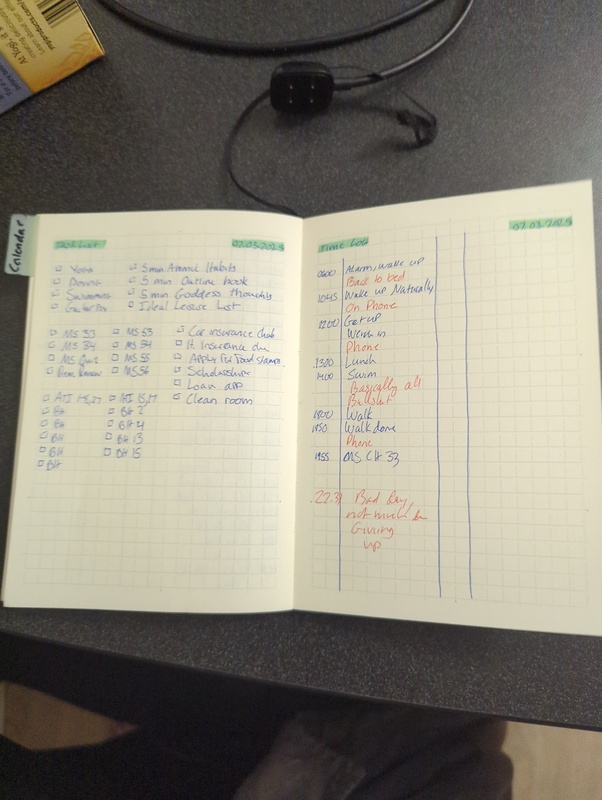 At Yogi, it is
myproducts.com/
Calendar
Task List 07.03.2025
Yoga
Swimming
5 min Atomic Habits
5 min Outline book
5 min Goddess thoughts
Ideal Leisure List
MS 33
MS 34
MS Quiz
MS 53
MS 54
MS 55
MS 56
Car insurance
H. Insurance
Apply for food stamps
Scholarship
Loan app
Clean room
ATI
BH
BH
BH
BH
BH
ATI
BH 2
BH 4
BH 13
BH 15
Time Log 07.03.2025
0600 Alarm, wake up
Back to bed
1045 Wake up Naturally
On Phone
1200 Get up
Weigh in
Phone
1300 Lunch
1400 Swim
Basically all
Bullshit
1800 Walk
1950 Walk done
Phone
1955 MS CH 33
22.3 Bad Day,
not much
Giving
up